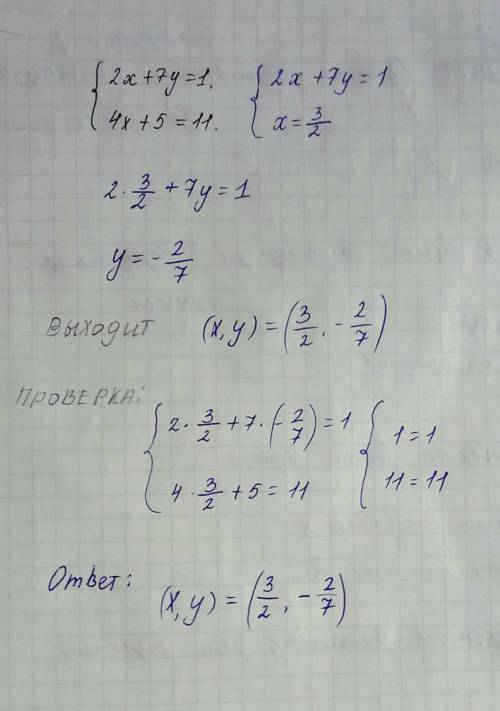 { 2x+7y=1,   { 2x+7y=1
{ 4x+5=11.   { x=3/2
2·3/2+7y=1
y=-2/7
ВЫХОДИТ (x,y)=(3/2,-2/7)
ПРОВЕРКА:
{ 2·3/2+7·(-2/7)=1   { 1=1
{ 4·3/2+5=11   { 11=11
Ответ: (x,y)=(3/2,-2/7)